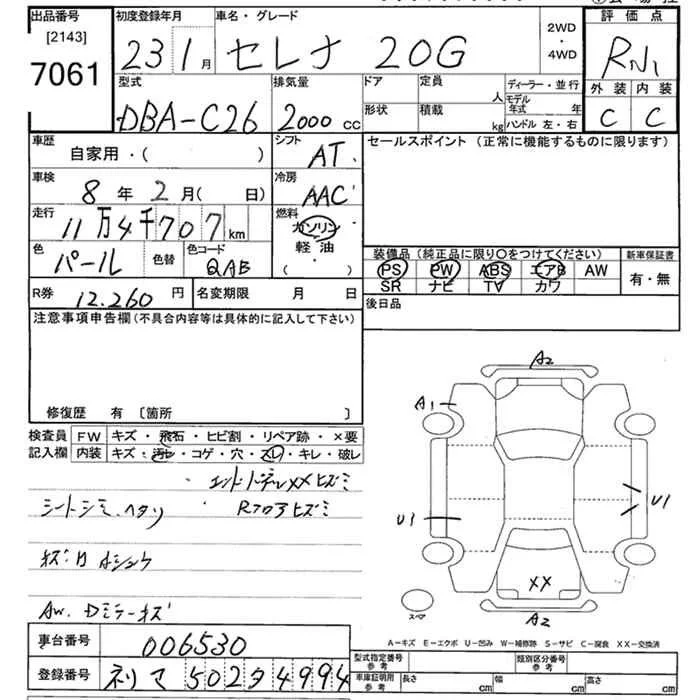 出品番号 初度登録年月 車名・グレード 評価点
[2143]
7061
23 1月 セレナ 20G
2WD
・
4WD
外装 内装
C C
型式 排気量 ドア 定員 人 ディーラー・並行
DBA-C26 2000cc 形状 積載 kg モデル年式 年
ハンドル 左・右
車歴 自家用・( )
シフト AT
セールスポイント(正常に機能するものに限ります)
車検 8年 2月( 日)
冷房 AAC
走行 11万4千707km
燃料 ガソリン
軽油
( )
色 パール 色替 色コード QAB
装備品(純正品に限り○をつけてください) 新車保証書
PS PW ABS エアB AW 有・無
SR ナビ TV カワ
R券 12.260円 名変期限 月 日
後日品
注意事項申告欄(不具合内容等は具体的に記入して下さい)
修復歴 有 [箇所 ]
検査員 FW キズ・飛石・ヒビ割・リペア跡・×要
記入欄 内装 キズ・汚レ・コゲ・穴・スレ・キレ・破レ
シートシミ、ヘタリ
AW. Dミラーキズ
A2
A1
U1
U1
XX
A2
スペア
A-キズ E-エクボ U-凹み W-補修跡 S-サビ C-腐食 XX-交換済
車台番号 006530
登録番号 502 4994
型式指定番号 参考 類別区分番号 参考
車庫証明用 参考 長さ cm 幅 cm 高さ cm